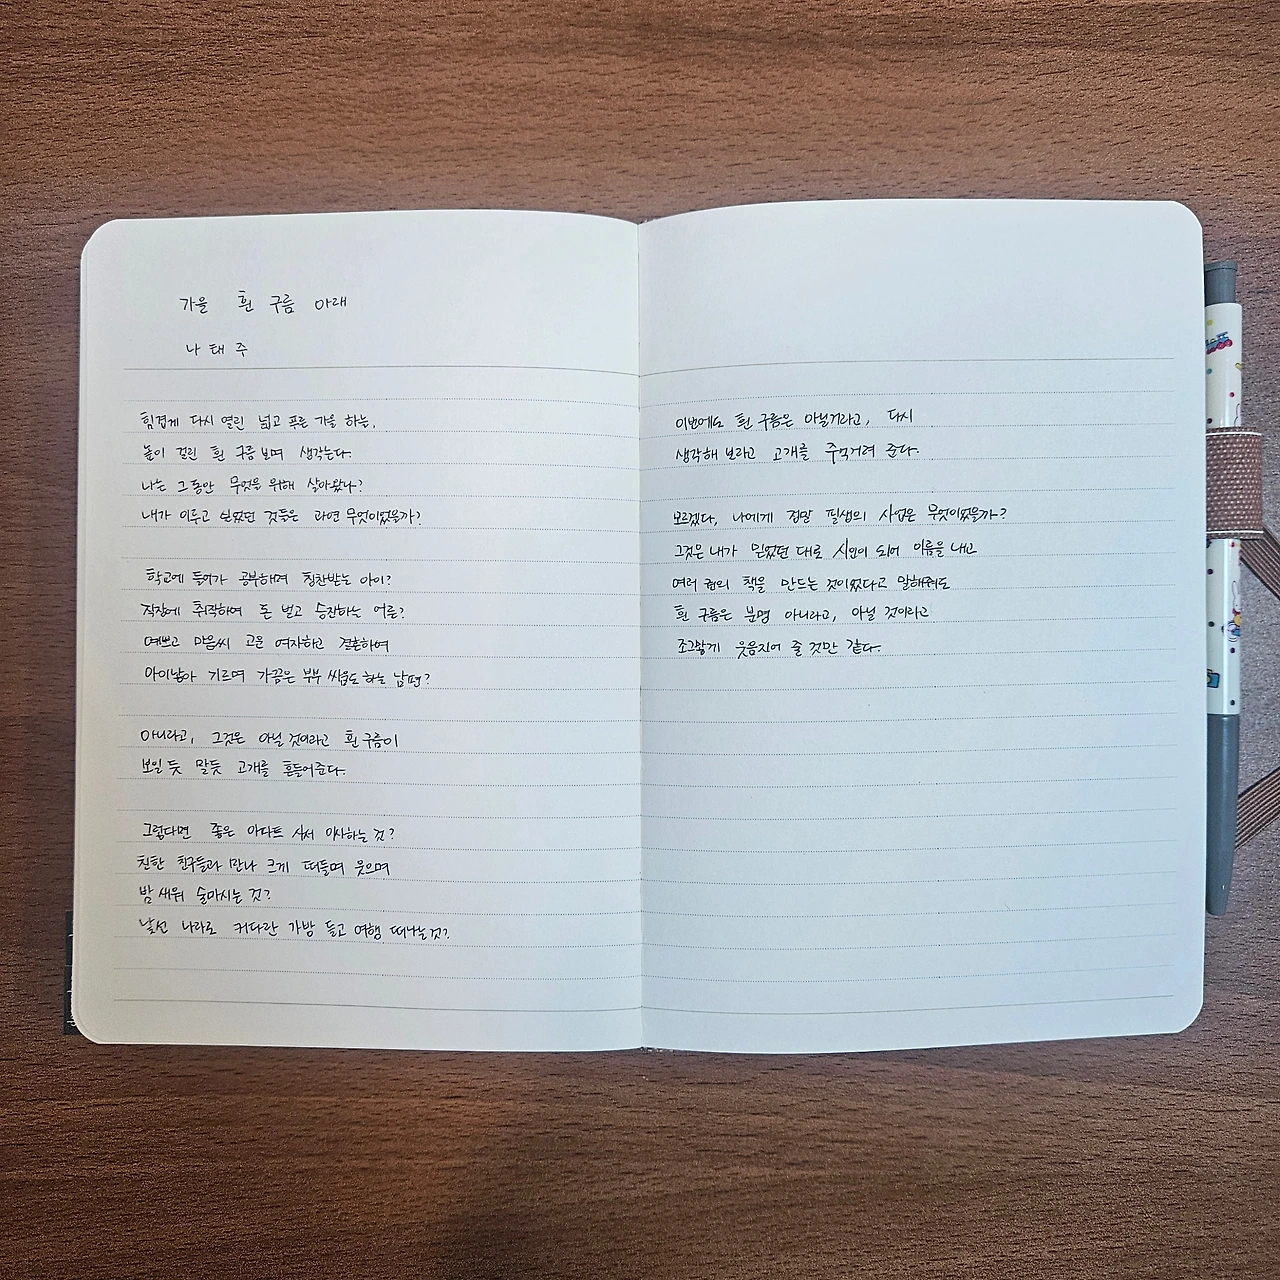 가을 흰 구름 아래
나태주
힘겹게 다시 열린 넓고 푸른 가을 하늘,
높이 걸린 흰 구름 보며 생각는다.
나는 그동안 무엇을 위해 살아왔나?
내가 이루고 싶었던 것들은 과연 무엇이었을까?
학교에 들어가 공부해며 칭찬받는 아이?
직장에 취직하여 돈 벌고 승진하는 어른?
예쁘고 마음씨 고운 여자하고 결혼하여
아이낳아 기르며 가끔은 부부 싸움도 하는 남편?
아니라고, 그것은 아닐 것이라고 흰 구름이
보일 듯 말듯 고개를 흔들어준다.
그렇다면 좋은 아파트 사서 이사하는 것?
친한 친구들과 만나 크게 떠들며 웃으며
밤 새워 술마시는 것?
낯선 나라로 커다란 가방 들고 여행 떠나는 것?
이번에도 흰 구름은 아닐거라고, 다시
생각해 보라고 고개를 주억거려 준다.
모르겠다, 나에게 정말 필생의 사업은 무엇이었을까?
그것은 내가 믿었던 대로 시인이 되어 이름을 내고
여러 권의 책을 만드는 것이었다고 말해줘도
흰 구름은 분명 아니라고, 아닐 것이라고
조그맣게 웃음지어 줄 것만 같다.